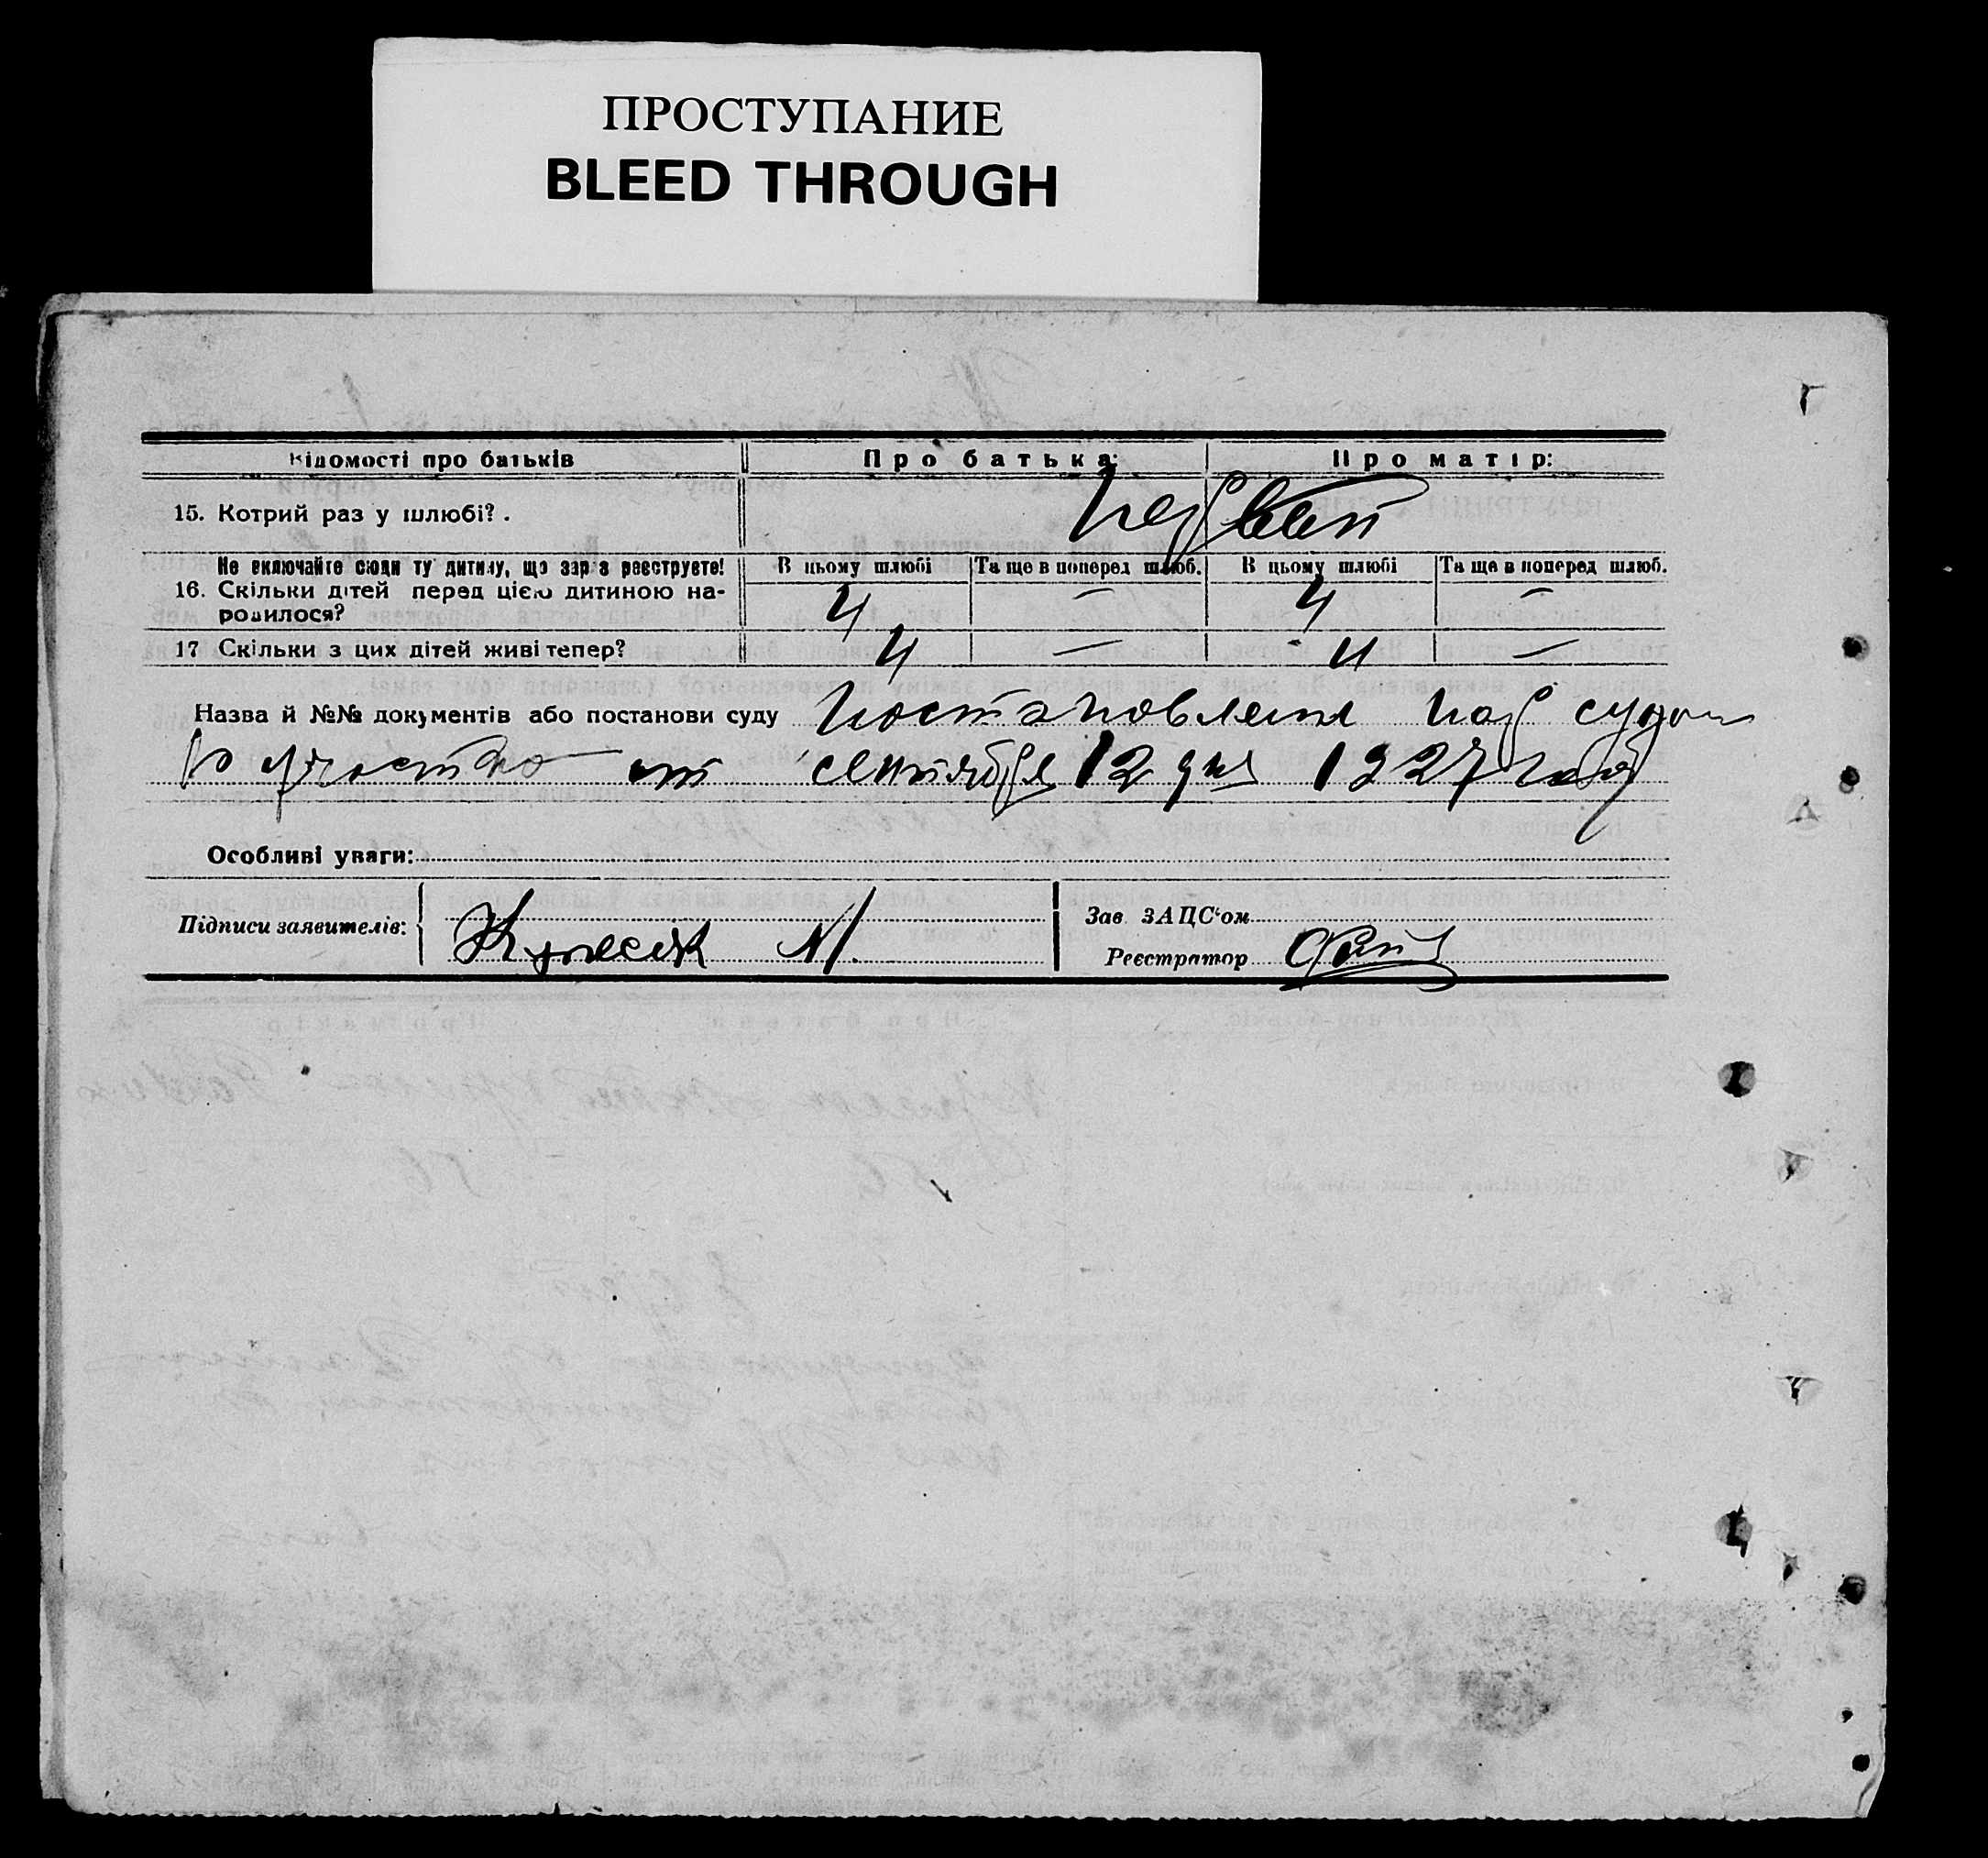 ПРОСТУПАНИЕ
BLEED THROUGH
Відомості про батьків Про батька: Про матір:
15. Котрий раз у шлюбі? . первый
Не включайте сюди ту дитину, що зараз реєструєте! В цьому шлюбі Та ще в поперед шлюб. В цьому шлюбі Та ще в поперед шлюб.
16. Скільки дітей перед цією дитиною на-
родилося? 4 — 4 —
17 Скільки з цих дітей живі тепер? 4 — 4 —
Назва й №№ документів або постанови суду постановления нар судом
участка от сентября 12 дня 1927 года
Особливі уваги:
Підписи заявителів: Зав. ЗАЦС'ом
Реєстратор